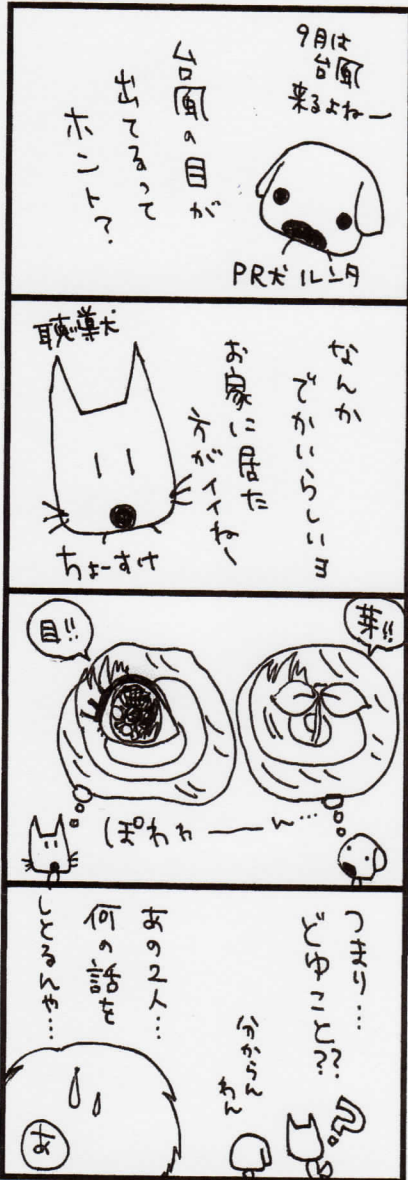 9月は
台風
来るよねー
台風の目が
出てるって
ホント?
PR犬 ルンタ
なんか
でかいらしいヨ
お家に居た
方がイイねー
聴導犬
ちょーすけ
芽!!
目!!
ぽわわーん…
つまり…
どゆこと??
?
分からん
わん
あの2人…
何の話を
しとるんや…
あ